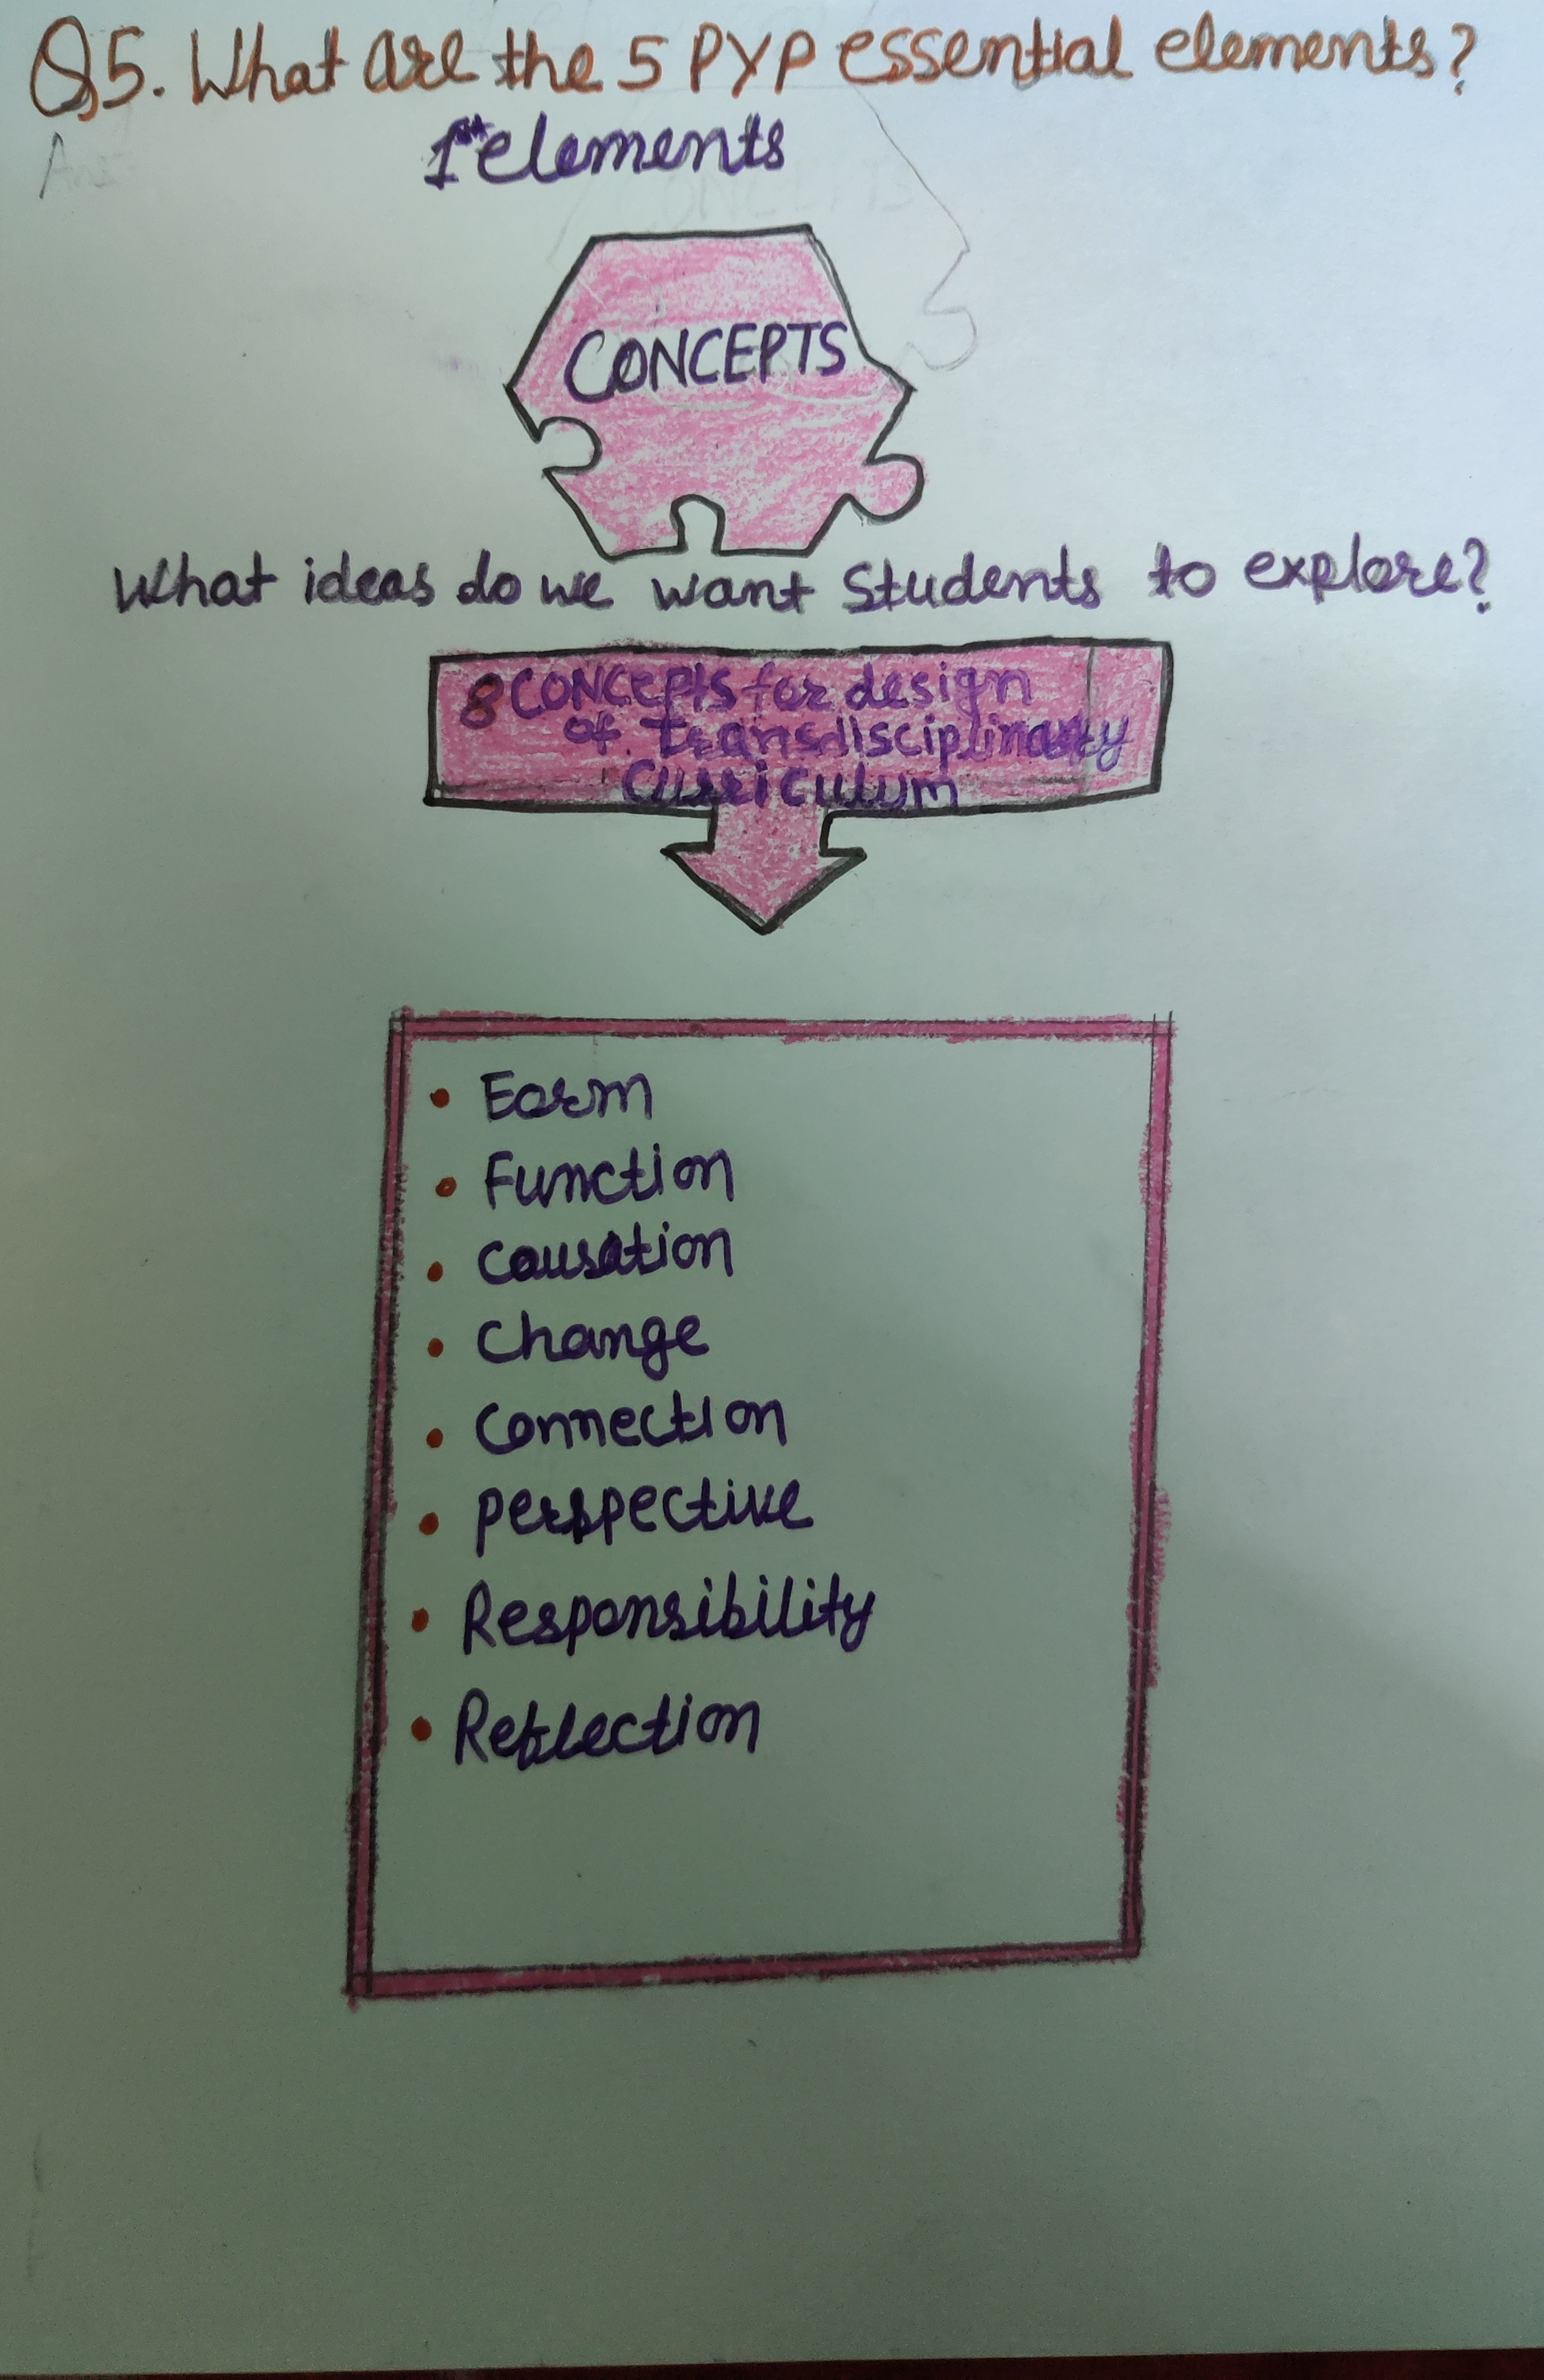 Q5. What are the 5 PYP essential elements?
Ans
1st elements
CONCEPTS
What ideas do we want students to explore?
8 CONCEPTS for design
of transdisciplinary
curriculum
• Form
• Function
• Causation
• Change
• Connection
• perspective
• Responsibility
• Reflection